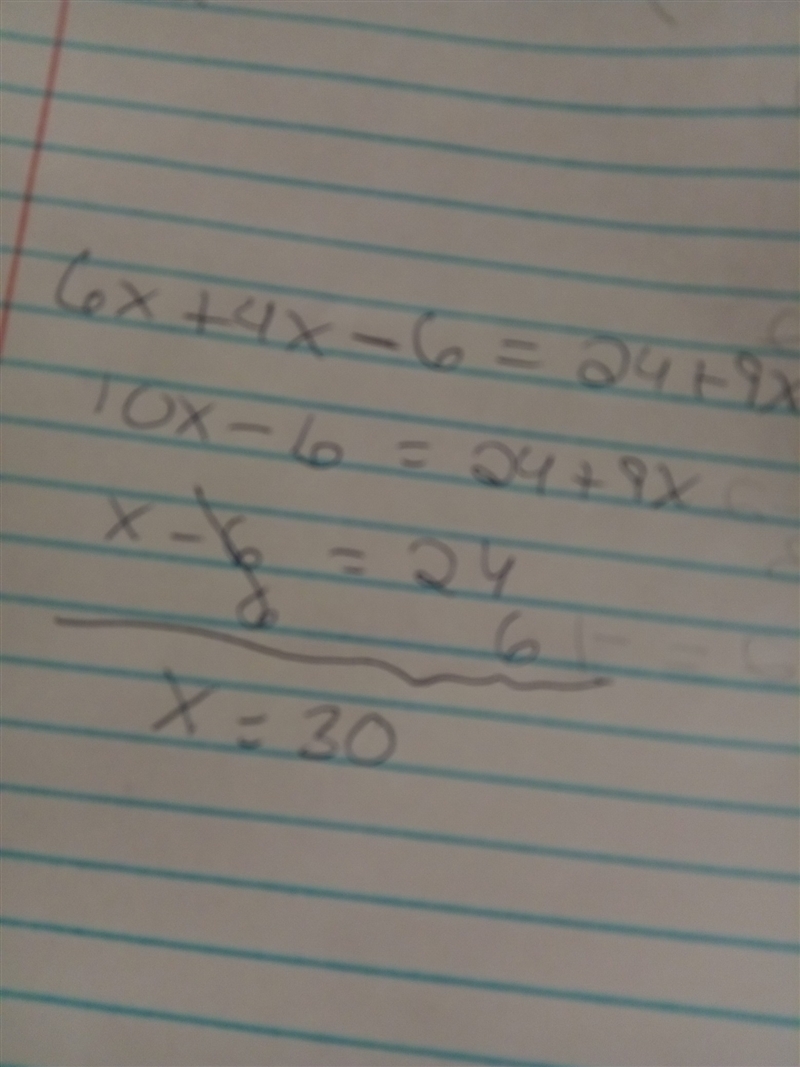 6x + 4x - 6 = 24 + 9x
10x - 6 = 24 + 9x
x - 6 = 24
6 6
x = 30